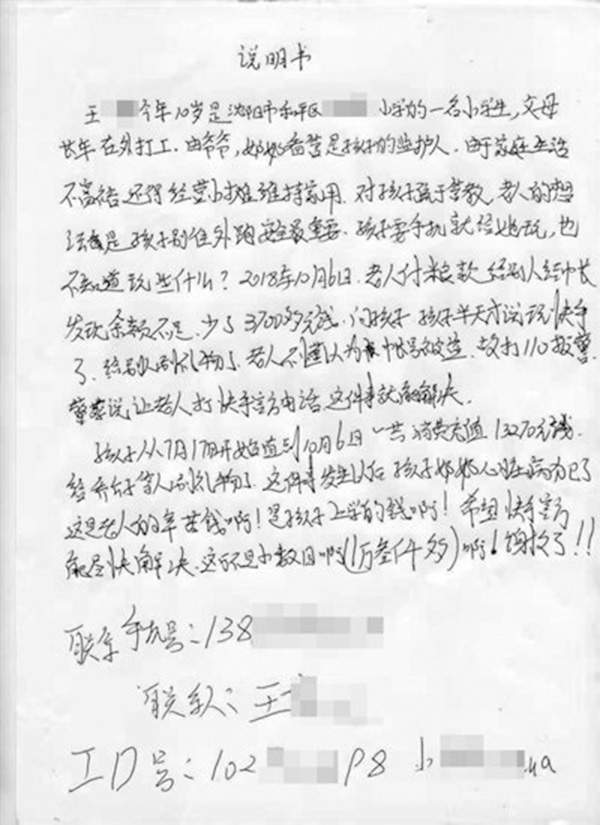 说明书
王 今年10岁是沈阳市和平区 小学的一名小学生,父母
长年在外打工.由爷爷,奶奶看管是孩子的监护人.由于家庭生活
不富裕还得经营小摊维持家用.对孩子疏于管教.老人的想
法就是孩子别往外跑安全最重要.孩子要手机就给她玩,也
不知道玩些什么?2018年10月6日.老人付款给别人
发现余额不足.少了3700多元钱.问孩子 孩子半天才说玩快手
了.给别人刷礼物了.老人不懂认为 号被盗.故打110报警.
警察说让老人打快手官方电话.这件事就能解决.
孩子从7月17日开始直到10月6日一共消费充值13270元钱.
给 等人刷礼物了.这件事发生以后 孩子奶奶心脏病犯了
这是老人的辛苦钱啊!是孩子上学的钱啊!希望快手官方
能尽快解决.这可不是小数目啊(1万叁仟多)啊!谢谢了!!
联系手机号:138
联系人:王
ID号:102 P8 小 .ua